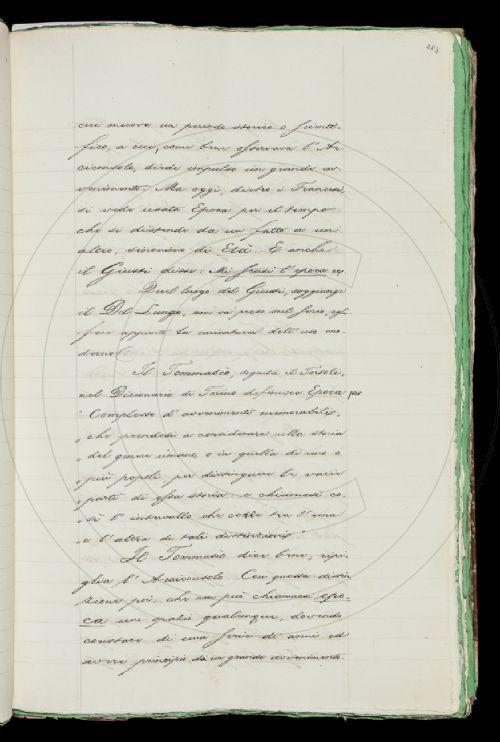 283
cui muove un periodo storico o scienti-
fico, a cui, come ben osservava l'Ar
ciconsolo, diede impulso un grande av
venimento. Ma oggi, dietro i Francesi,
si vede usata Epoca per il tempo
che si distende da un fatto a un
altro, sinonimo di Età. E anche
il Giusti disse: Mi scusi l'epoca ec
Quel luogo del Giusti, soggiunge
il Del Lungo, non va preso sul serio, egli
fece appunto la caricatura dell'uso mo
derno.
Il Tommaséo, seguita il Tortoli,
nel Dizionario di Torino definisce Epoca per
"Complesso d'avvenimenti memorabili,
" che prendesi a considerare nella storia
" del genere umano, o in quella di uno o
" più popoli, per distinguere le varie
" parti di essa storia: e chiamasi co
" sì l'intervallo che corre tra l'una
" e l'altra di tali distinzioni"
Il Tommaséo dice bene, ripi
glia l'Arciconsolo. Con questa distin
zione poi, che non può chiamarsi epo-
ca uno spazio qualunque, dovendo
constare di una serie di anni ed
avere principio da un grande avvenimento.